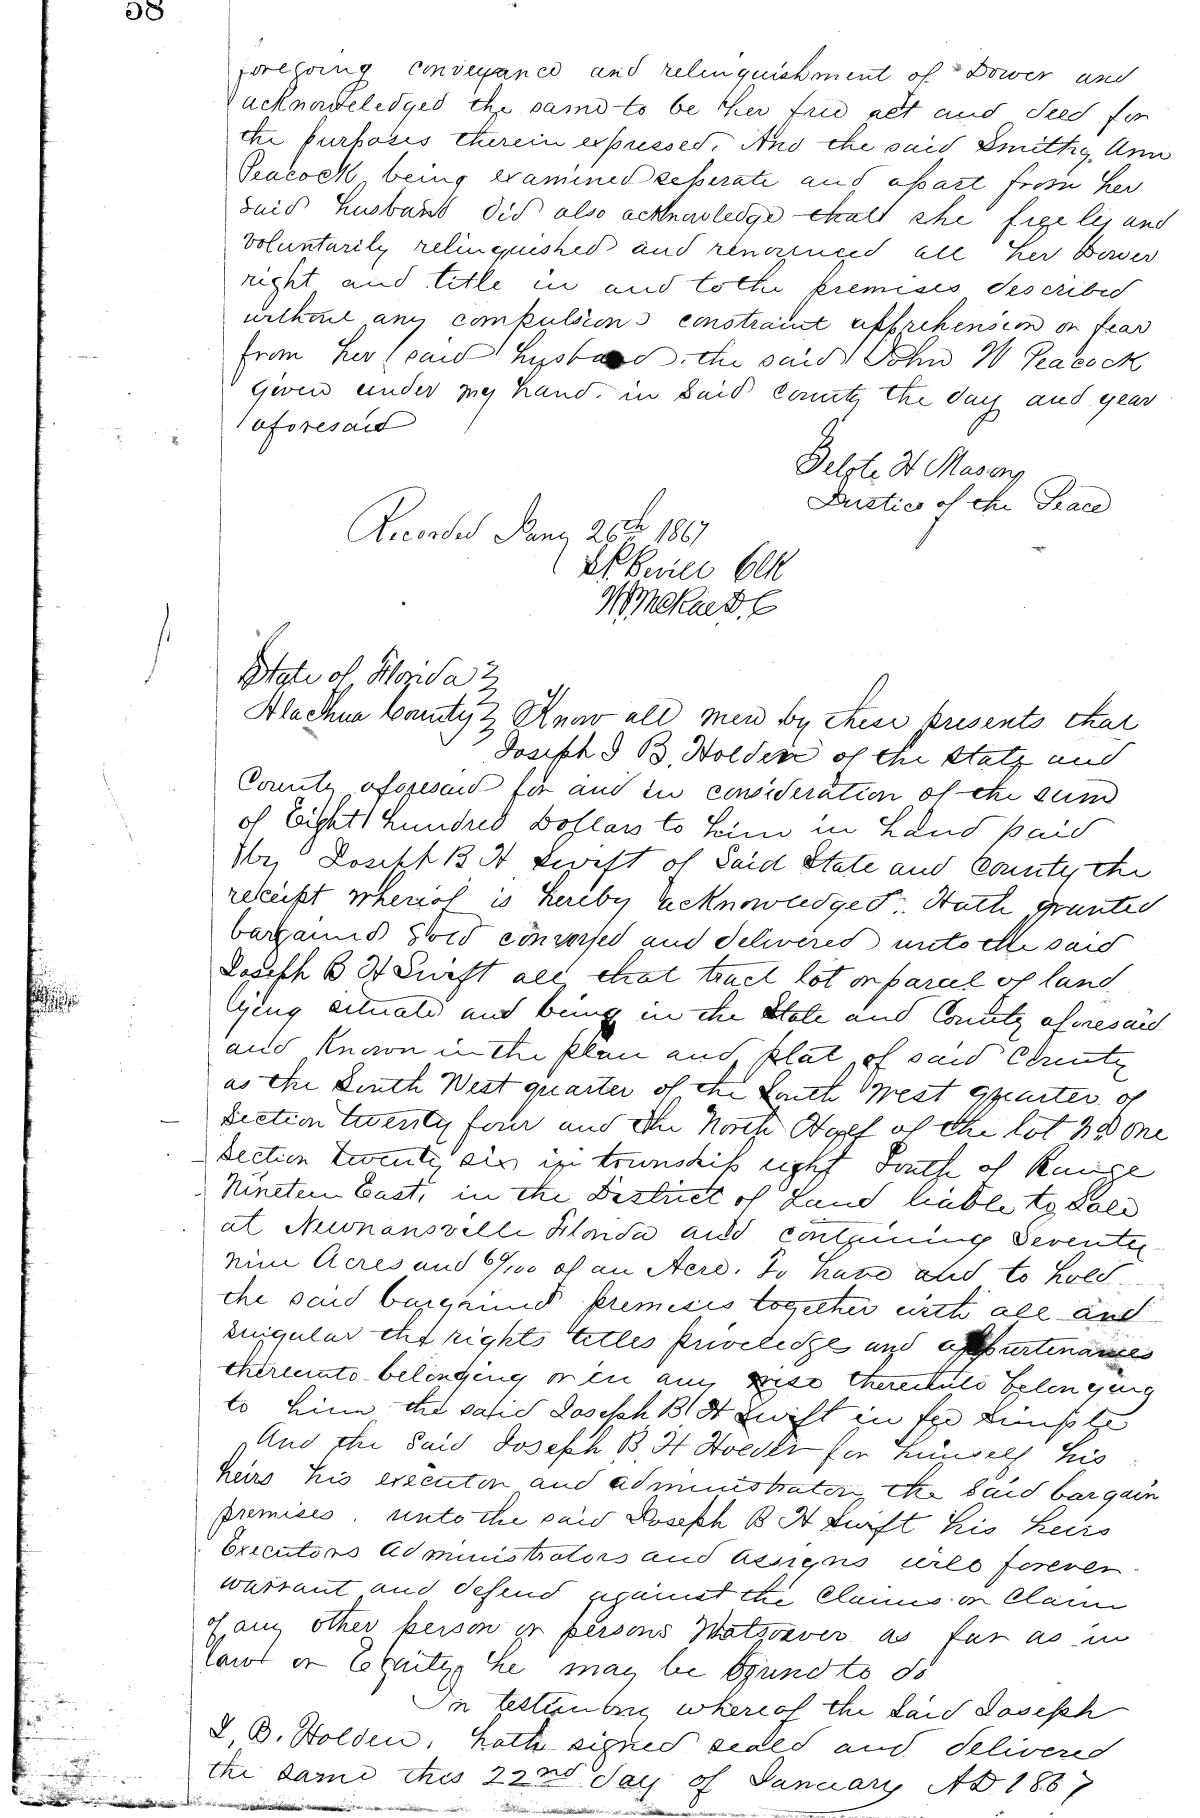 58
foregoing conveyance and relinquishment of Dower and
acknowledged the same to be her free act and deed for
the purposes therein expressed. And the said Smithy Ann
Peacock being examined seperate and apart from her
said husband did also acknowledge that she freely and
voluntarily relinquished and renounced all her Dower
right and title in and to the premises described
without any compulsion constraint apprehension or fear
from her said husband the said John W Peacock
given under my hand in said County the day and year
aforesaid
H Mason
Justice of the Peace
Recorded Jany 26th 1867
Clk
McRae D.C
State of Florida
Alachua County Know all men by these presents that
Joseph J B. Holden of the State and
County aforesaid for and in consideration of the sum
of Eight hundred Dollars to him in hand paid
by Joseph B H Swift of Said State and County the
receipt whereof is hereby acknowledged. Hath granted
bargained sold conveyed and delivered unto the said
Joseph B H Swift all that tract lot or parcel of land
lying situate and being in the State and County aforesaid
and Known in the plan and plat of said County
as the South West quarter of the South West quarter of
Section twenty four and the North Half of the lot No one
Section twenty six in township eight South of Range
Nineteen East, in the District of Land liable to Sale
at Newnansville Florida and containing Seventy
nine Acres and /100 of an Acre. To have and to hold
the said bargained premises together with all and
singular the rights titles priveledges and appurtenances
thereunto belonging or in any wise thereunto belonging
to him the said Joseph B H Swift in fee Simple
And the Said Joseph B. H Holder for himself his
heirs his executor and administrator the Said bargain
premises unto the said Joseph B H Swift his heirs
Executors administrators and assigns will forever
warrant and defend against the Claims or Claim
of any other person or persons Whatsoever as far as in
law or Equity he may be bound to do
In testimony whereof the Said Joseph
J, B. Holden, hath signed seald and delivered
the same this 22nd day of January AD 1867